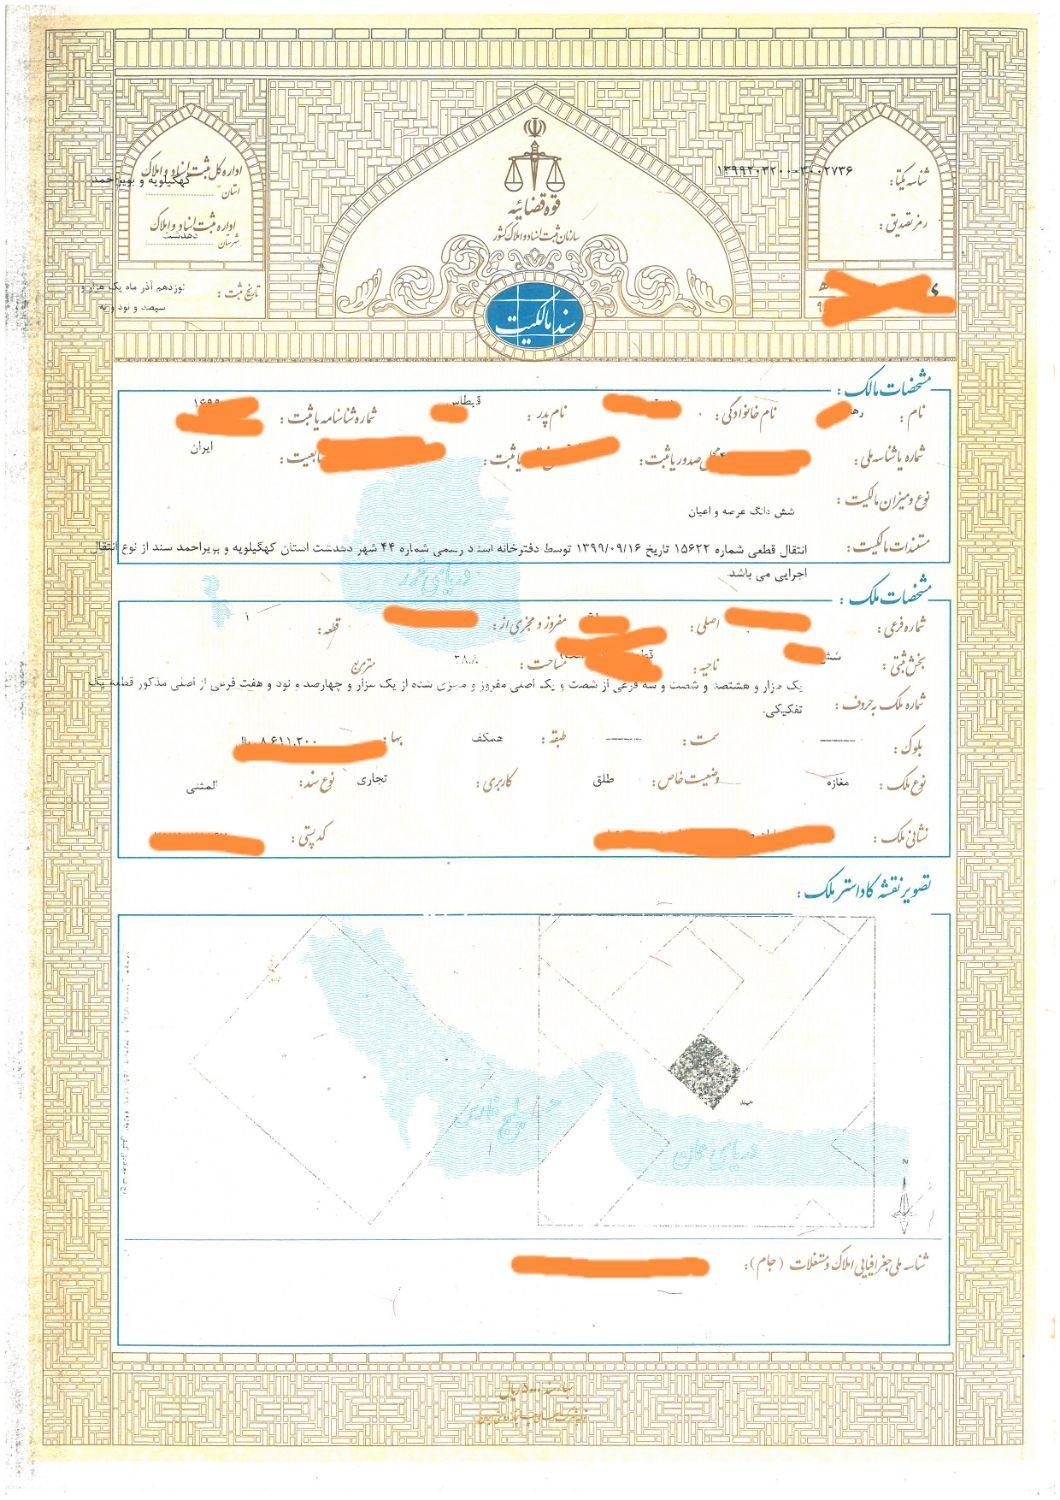 قوه قضائیه
سازمان ثبت اسناد و املاک کشور
سند مالکیت
شناسه یکتا:
رمز تصدیق:
اداره کل ثبت اسناد و املاک
استان کهگیلویه و بویراحمد
اداره ثبت اسناد و املاک
شهرستان دهدشت
تاریخ ثبت: نوزدهم آذر ماه یک هزار و
سیصد و نود و نه
مشخصات مالک:
نام: نام خانوادگی: نام پدر: قیطاس شماره شناسنامه یا ثبت:
شماره یا شناسه ملی: محل صدور یا ثبت: یا ثبت: تابعیت: ایران
نوع و میزان مالکیت: شش دانگ عرصه و اعیان
مستندات مالکیت: انتقال قطعی شماره ۱۵۶۲۲ تاریخ ۱۳۹۹/۰۹/۱۶ توسط دفترخانه اسناد رسمی شماره ۴۴ شهر دهدشت استان کهگیلویه و بویراحمد سند از نوع انتقال
اجرایی می باشد
دریای خزر
مشخصات ملک:
شماره فرعی: اصلی: مفروز و مجزی از: قطعه: ۱
بخش ثبتی: شش ناحیه: مساحت: مترمربع
شماره ملک به حروف: یک هزار و هشتصد و شصت و سه فرعی از شصت و یک اصلی مفروز و مجزی شده از یک هزار و چهارصد و نود و هفت فرعی از اصلی مذکور قطعه یک
تفکیکی.
بلوک: ------ سمت: ------ طبقه: همکف بها: ۸,۶۱۱,۲۰۰ ریال
نوع ملک: مغازه وضعیت خاص: طلق کاربری: تجاری نوع سند: المثنی
نشانی ملک: کدپستی:
تصویر نقشه کاداستر ملک:
خلیج فارس
دریای عمان
شناسه ملی جغرافیایی املاک و مستغلات (جام):